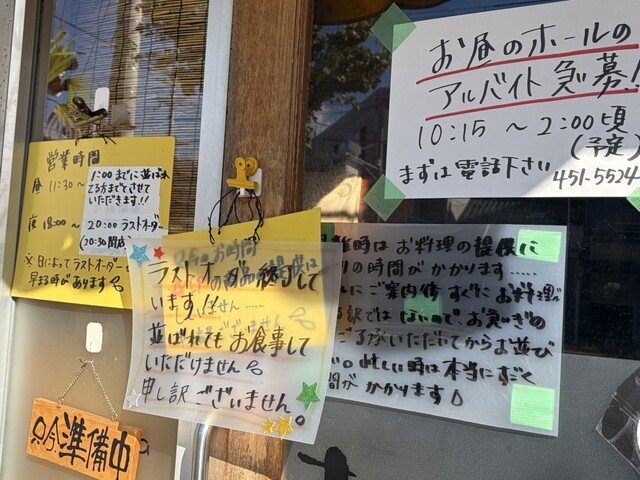 お昼のホールの
アルバイト急募!!
10:15 ～ 2:00頃
(予定)
まずは電話下さい
451-5524
営業時間
昼 11:30～
1:00までに並ばれ
てる方までとさせて
いただきます!!
夜 18:00～
20:00 ラストオーダー
(20:30閉店)
※日によってラストオーダー
早まる時があります
ラストオーダー終了して
います!!
並ばれてもお食事して
いただけません
申し訳ございません。
時は お料理の提供に
の時間がかかります……
にご案内後すぐにお料理が
る訳ではないので、お急ぎの
ご了承いただいてからお並び
い。忙しい時は本当にすごく
間がかかります
只今準備中